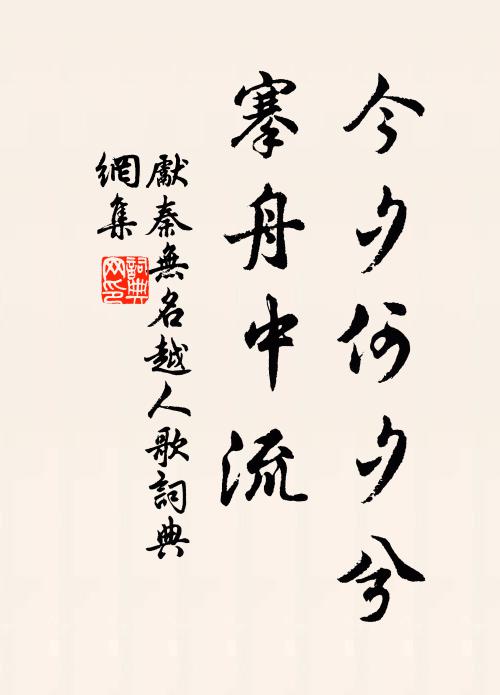 今夕何夕兮
搴舟中流
獻秦無名越人歌詞典
網集
詞典
網印